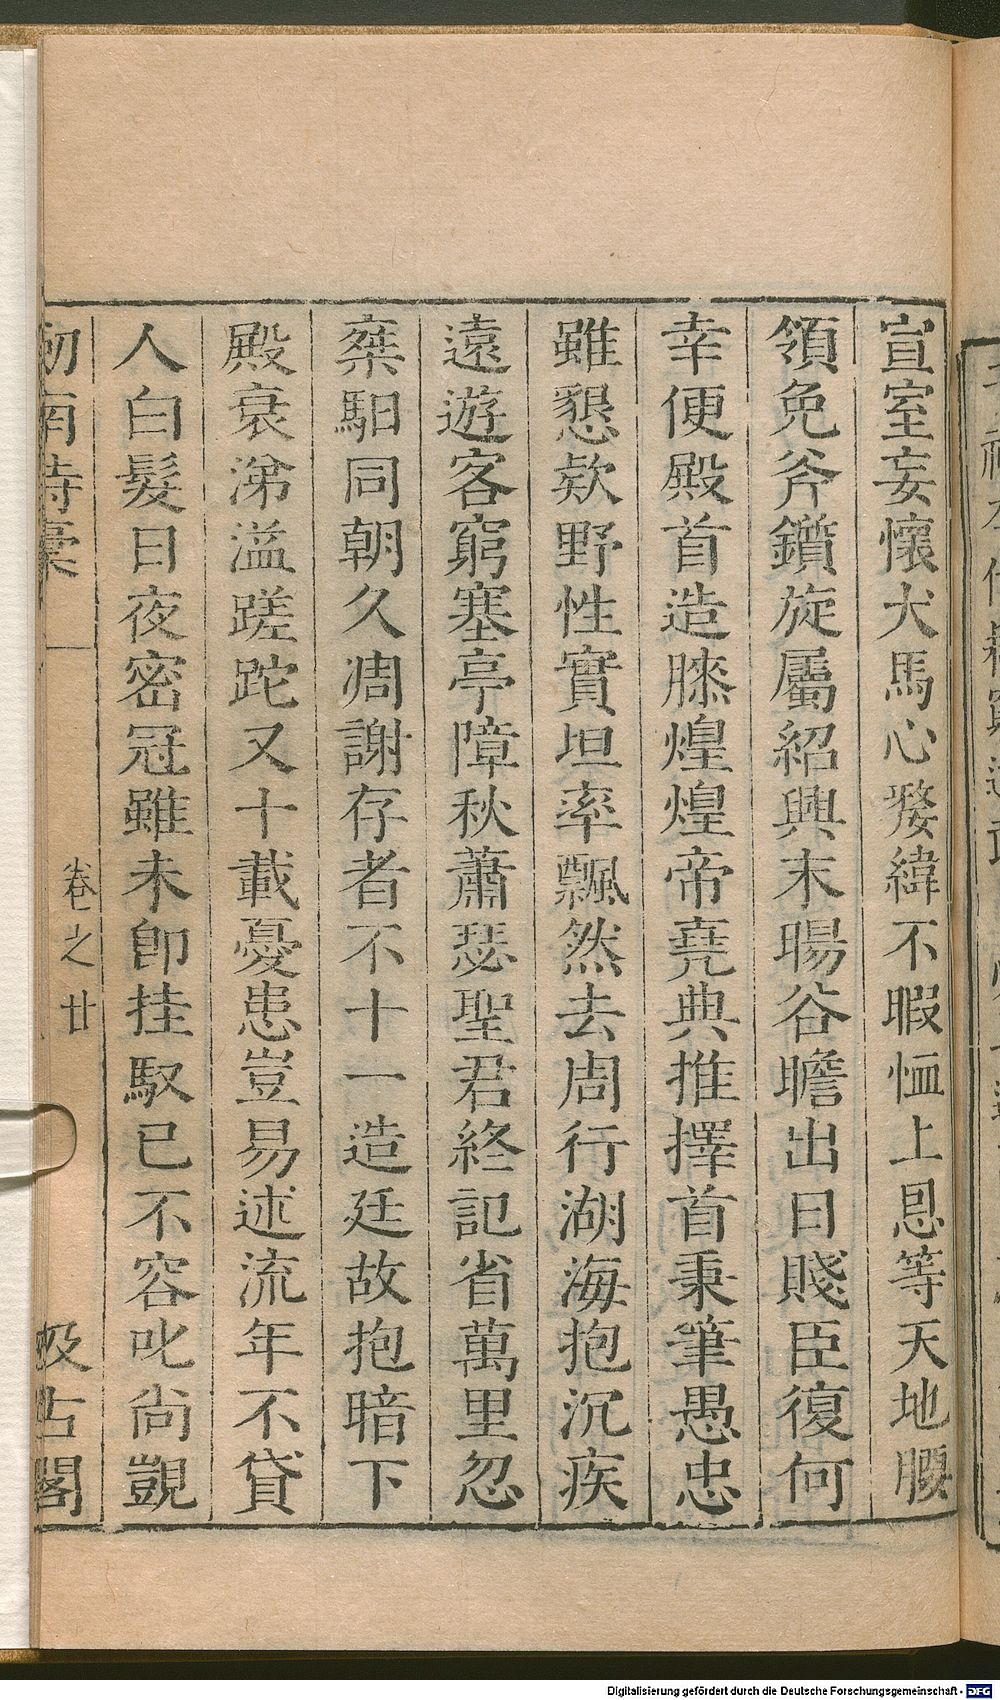 宣室妄懷犬馬心嫠緯不暇恤上恩等天地腰
領免斧鑕旋屬紹興末暘谷瞻出日賤臣復何
幸便殿首造膝煌煌帝堯典推擇首秉筆愚忠
雖懇欵野性實坦率飄然去周行湖海抱沉疾
遠遊客窮塞亭障秋蕭瑟聖君終記省萬里忽
棄馹同朝久凋謝存者不十一造廷故抱暗下
殿衰涕溢蹉跎又十載憂患豈易述流年不貸
人白髮日夜密冠雖未卽挂馭已不容叱尚覬
劒南詩稾
卷之廿
汲古閣
Digitalisierung gefördert durch die Deutsche Forschungsgemeinschaft - DFG